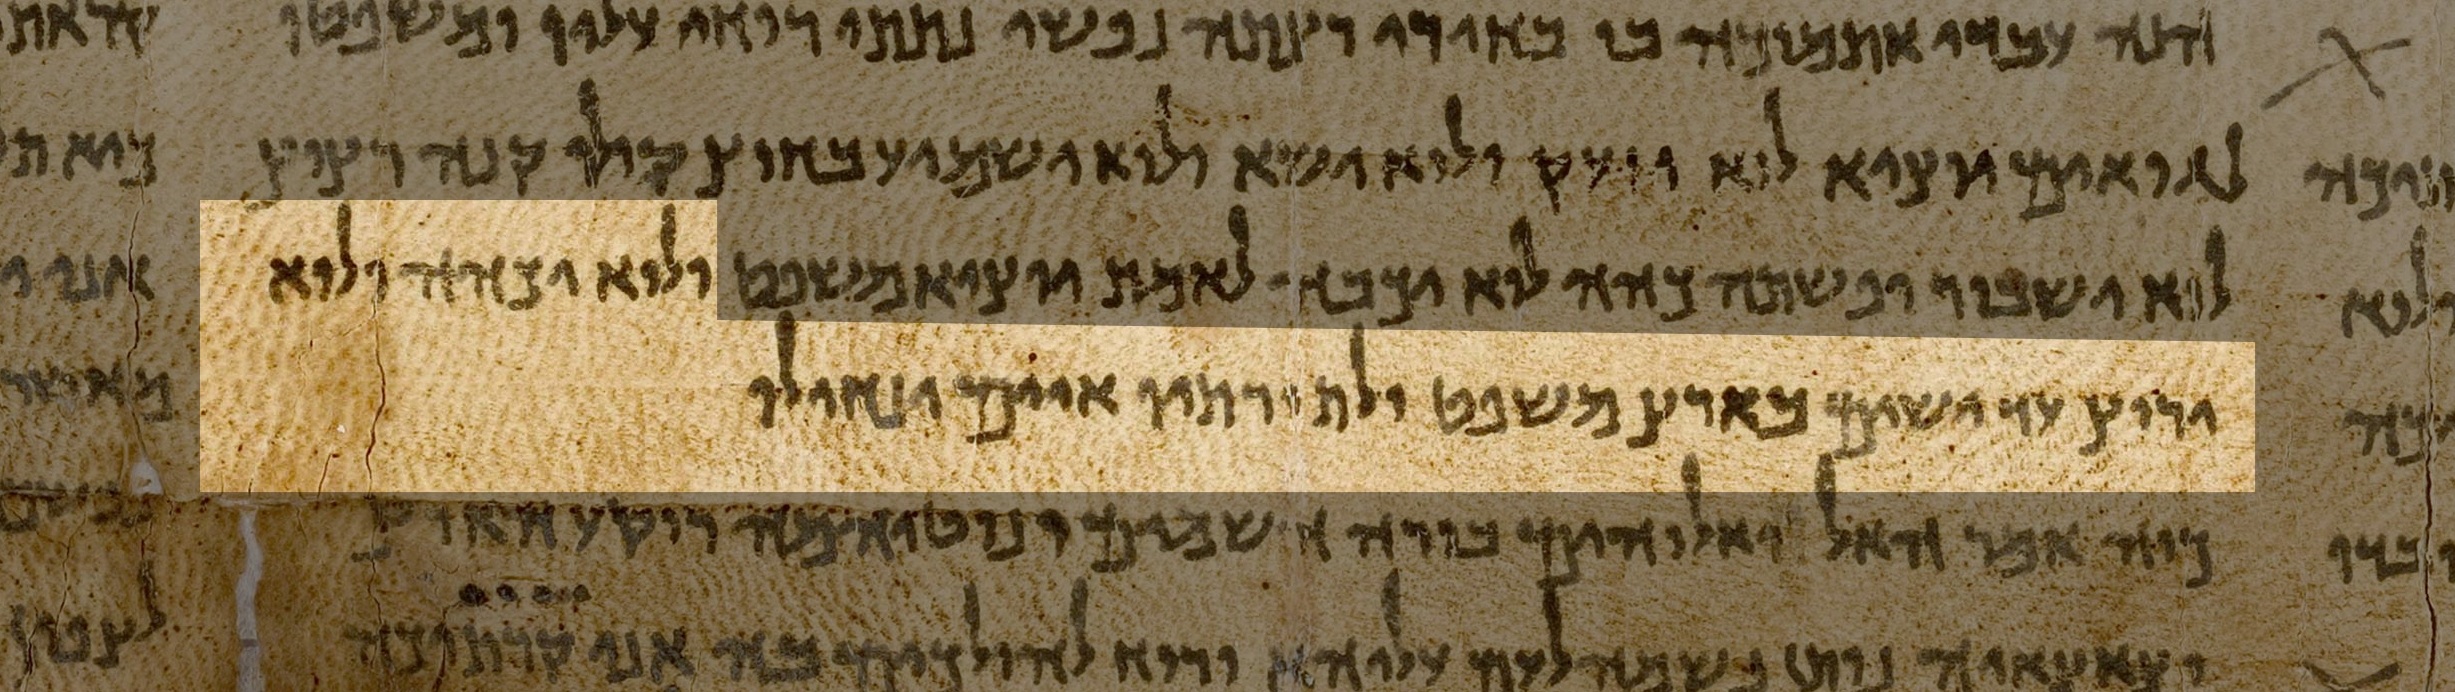 הנה עבדי אתמוכה בו בחירי רצתה נפשי נתתי רוחי עליו ומשפטו
לגואים יוציא לוא יזעק ולוא ישא ולוא ישמיע בחוץ קולו קנה רצוץ
לוא ישבור ופשתה כהה לוא יכבה לאמת יוציא משפט ולוא יכהה ולוא
ירוץ עד ישים בארץ משפט ולתורתיו איים ינחילו
כוה אמר האל ואלוהים בורה השמים ונוטיהמה רוקע הארץ
וצאצאיה נותן נשמה לעם עליהא ורוח להולכים בה אני קרתיכה